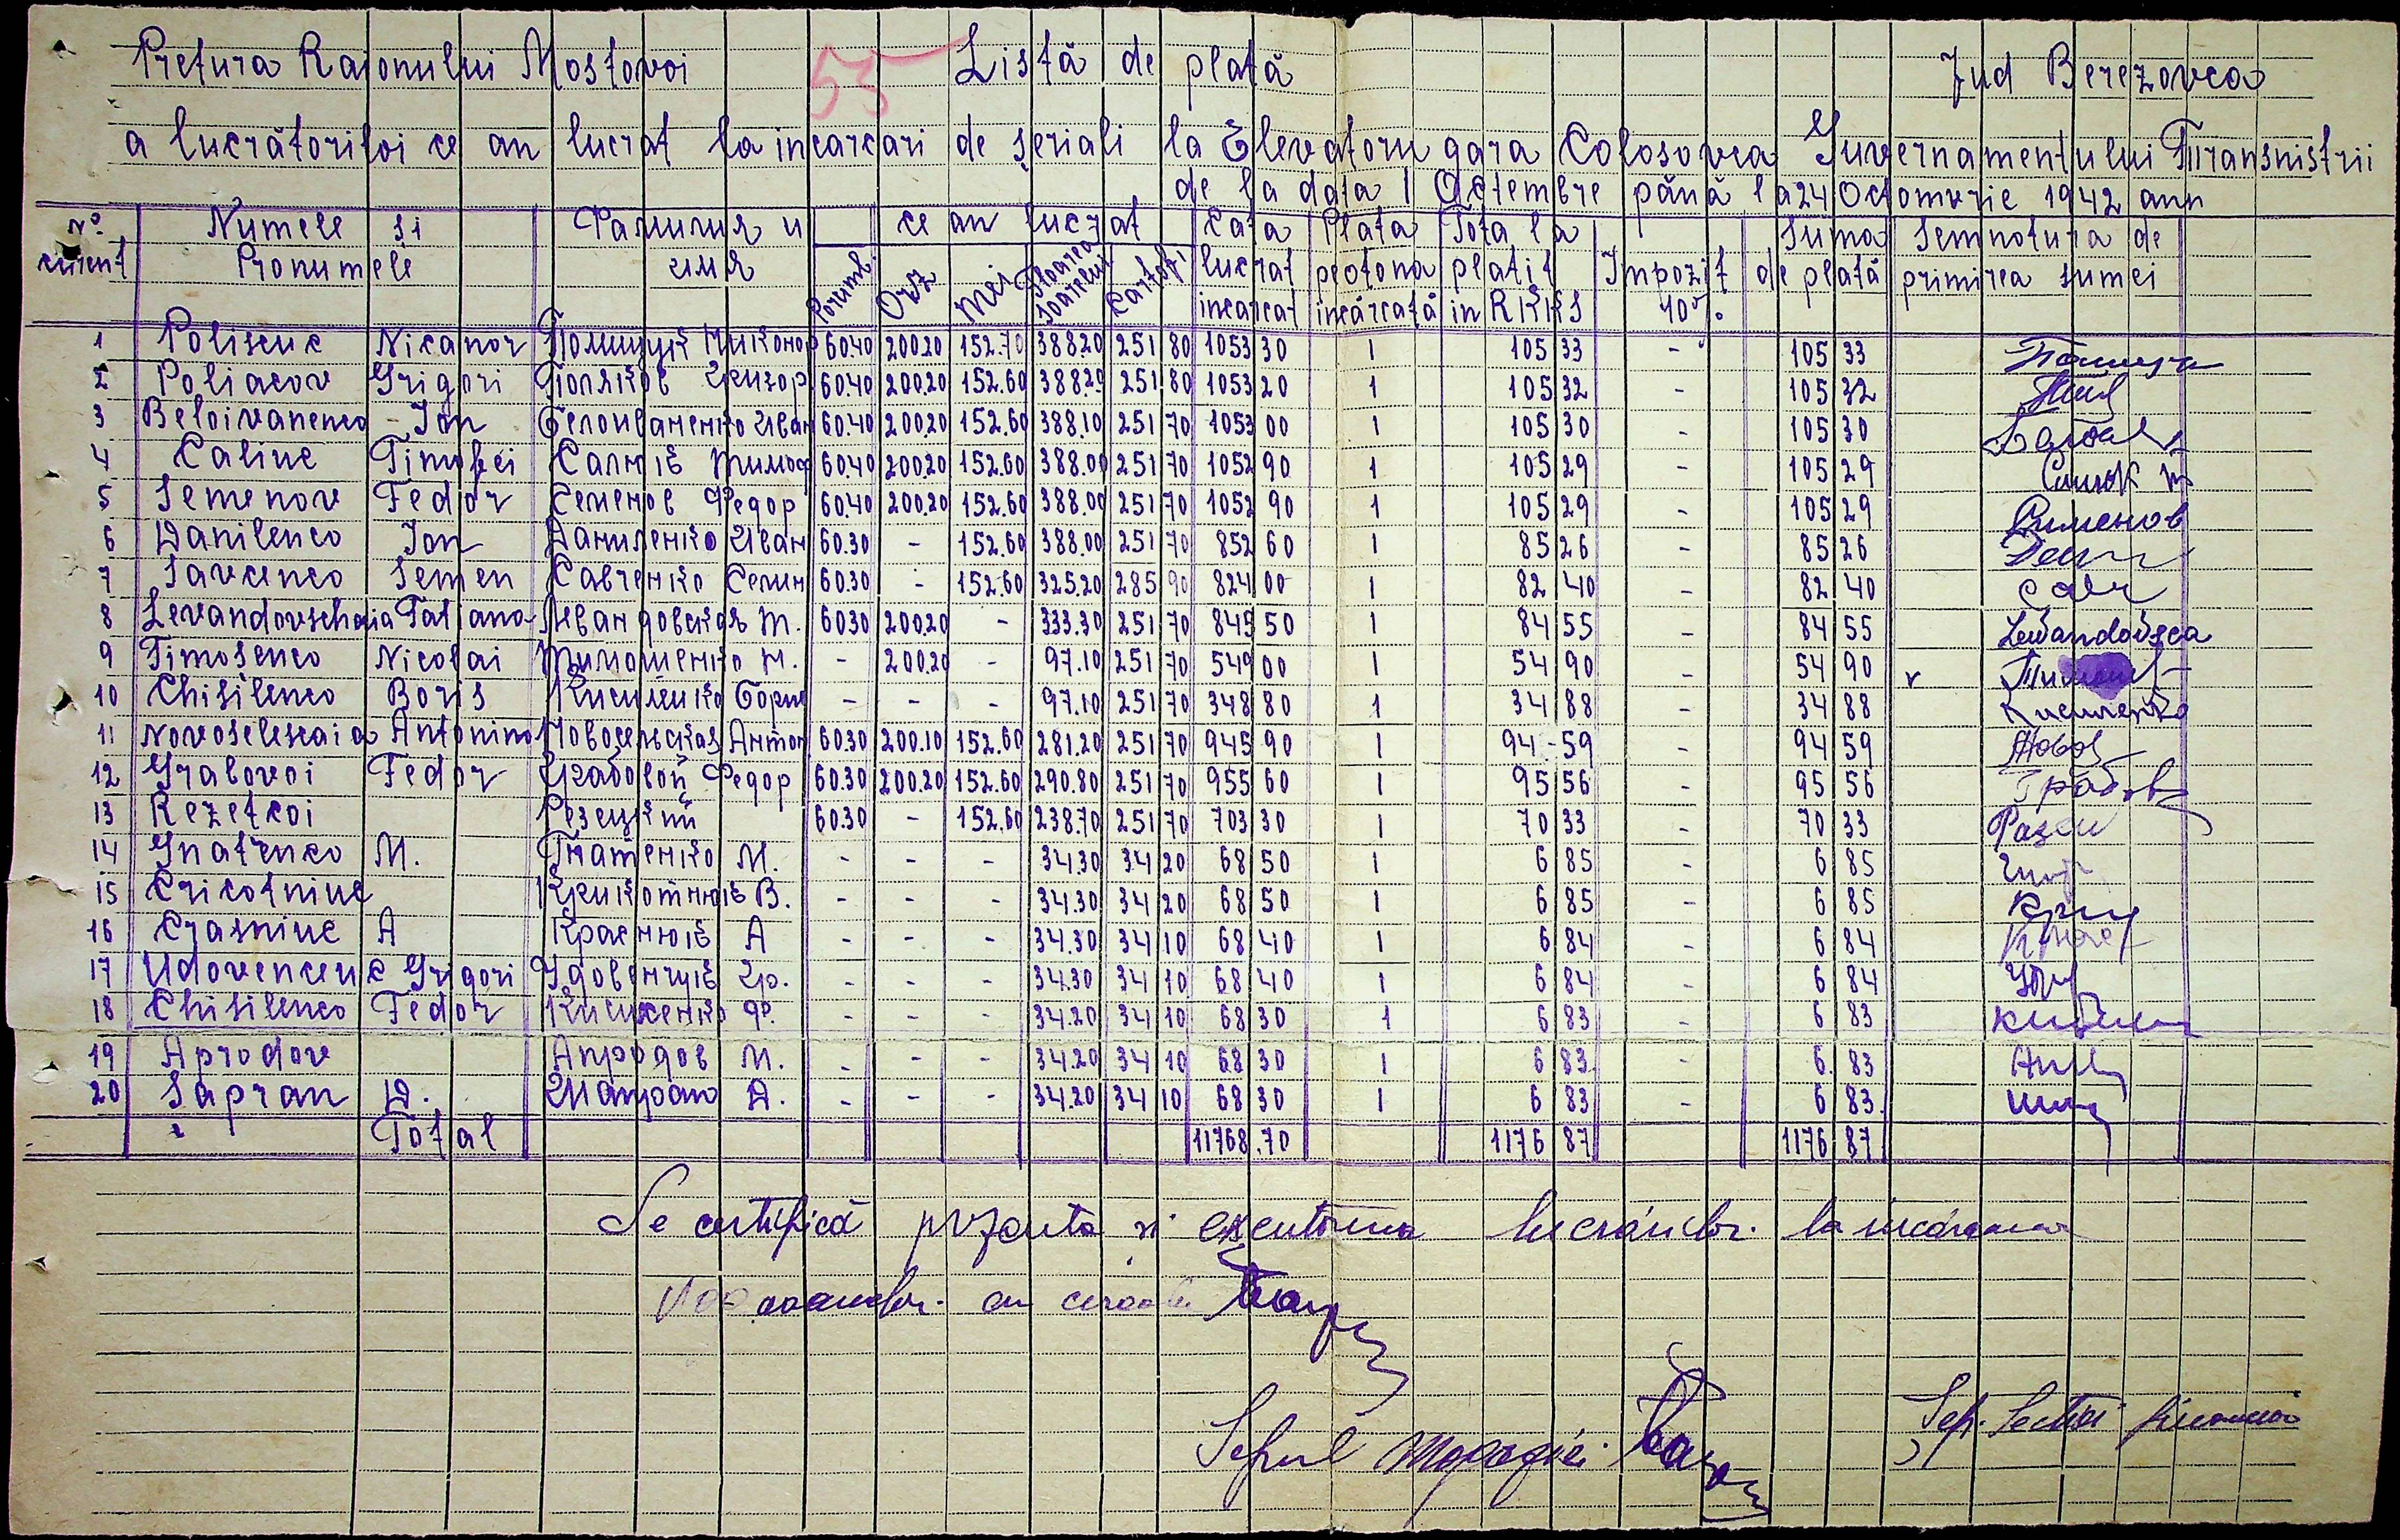 Pretura Raionului Mostovoi 55 Listă de plată Jud Berezovca
a lucrătoriloi ce an lucrat la incarcari de seriali la Elevatoru gara Colosovca Guvernamentului Transnistrii
de la data 1 Octembre până la 24 Octomvrie 1942 ann
No curent Numele si Pronumele Фамилия и имя ce an lucrat Porumb. Orz Mei Floarea Soarelui Cartofi Cata lucrat incarcat Plata pe tona incărcată Tota la platit in RKKS Impozit 10% Suma de plată Semnotura de primirea sumei
1 Poliscuc Nicanor Полищук Никонор 60.40 200.20 152.70 388.20 251 80 1053 30 1 105 33 - 105 33
2 Poliacov Grigori Поляков Григор 60.40 200.20 152.60 388.20 251.80 1053 20 1 105 32 - 105 32
3 Beloivanenco - Ion Белоиваненко Иван 60.40 200.20 152.60 388.10 251 70 1053 00 1 105 30 - 105 30
4 Caliuc Timofei Калнів тимоф 60.40 200.20 152.60 388.00 251 70 1052 90 1 105 29 - 105 29
5 Semenov Fedor Семенов Федор 60.40 200.20 152.60 388.00 251 70 1052 90 1 105 29 - 105 29 Сименов
6 Danilenco Ion Даниленко Иван 60.30 - 152.60 388.00 251 70 852 60 1 85 26 - 85 26
7 Savcenco Semen Савченко Семин 60.30 - 152.60 325.20 285 90 824 00 1 82 40 - 82 40
8 Levandovschaia Tatiana Левандовская Т. 60.30 200.20 - 333.30 251 70 845 50 1 84 55 - 84 55 Lewandowsca
9 Timosenco Nicolai Тимошенко Н. - 200.20 - 97.10 251 70 549 00 1 54 90 - 54 90 v
10 Chisilenco Boris Кисиленко Борис - - - 97.10 251 70 348 80 1 34 88 - 34 88
11 Novoselescaia Antonino Новосельская Антон 60.30 200.10 152.60 281.20 251 70 945 90 1 94-59 - 94 59
12 Grabovoi Fedor Грабовой Федор 60.30 200.20 152.60 290.80 251 70 955 60 1 95 56 - 95 56
13 Rezetcoi Резецкий 60.30 - 152.60 238.70 251 70 703 30 1 70 33 - 70 33
14 Gnatenco M. Гнатенко М. - - - 34.30 34 20 68 50 1 6 85 - 6 85
15 Cricotniuc Крикотнюк В. - - - 34.30 34 20 68 50 1 6 85 - 6 85
16 Crasniuc A Краснюк А - - - 34.30 34 10 68 40 1 6 84 - 6 84
17 Udovencuc Grigori Удовенцук Гр. - - - 34.30 34 10 68 40 1 6 84 - 6 84
18 Chisilenco Fedor Кисиленко Ф. - - - 34.20 34 10 68 30 1 6 83 - 6 83
19 Aprodov Апродов М. - - - 34.20 34 10 68 30 1 6 83. - 6. 83
20 Sapran D. Шапран Д. - - - 34.20 34 10 68 30 1 6 83 - 6 83.
Total 11768.70 1176 87 1176 87
Se certifică si la
cu
Seful
Sef. Sectiei